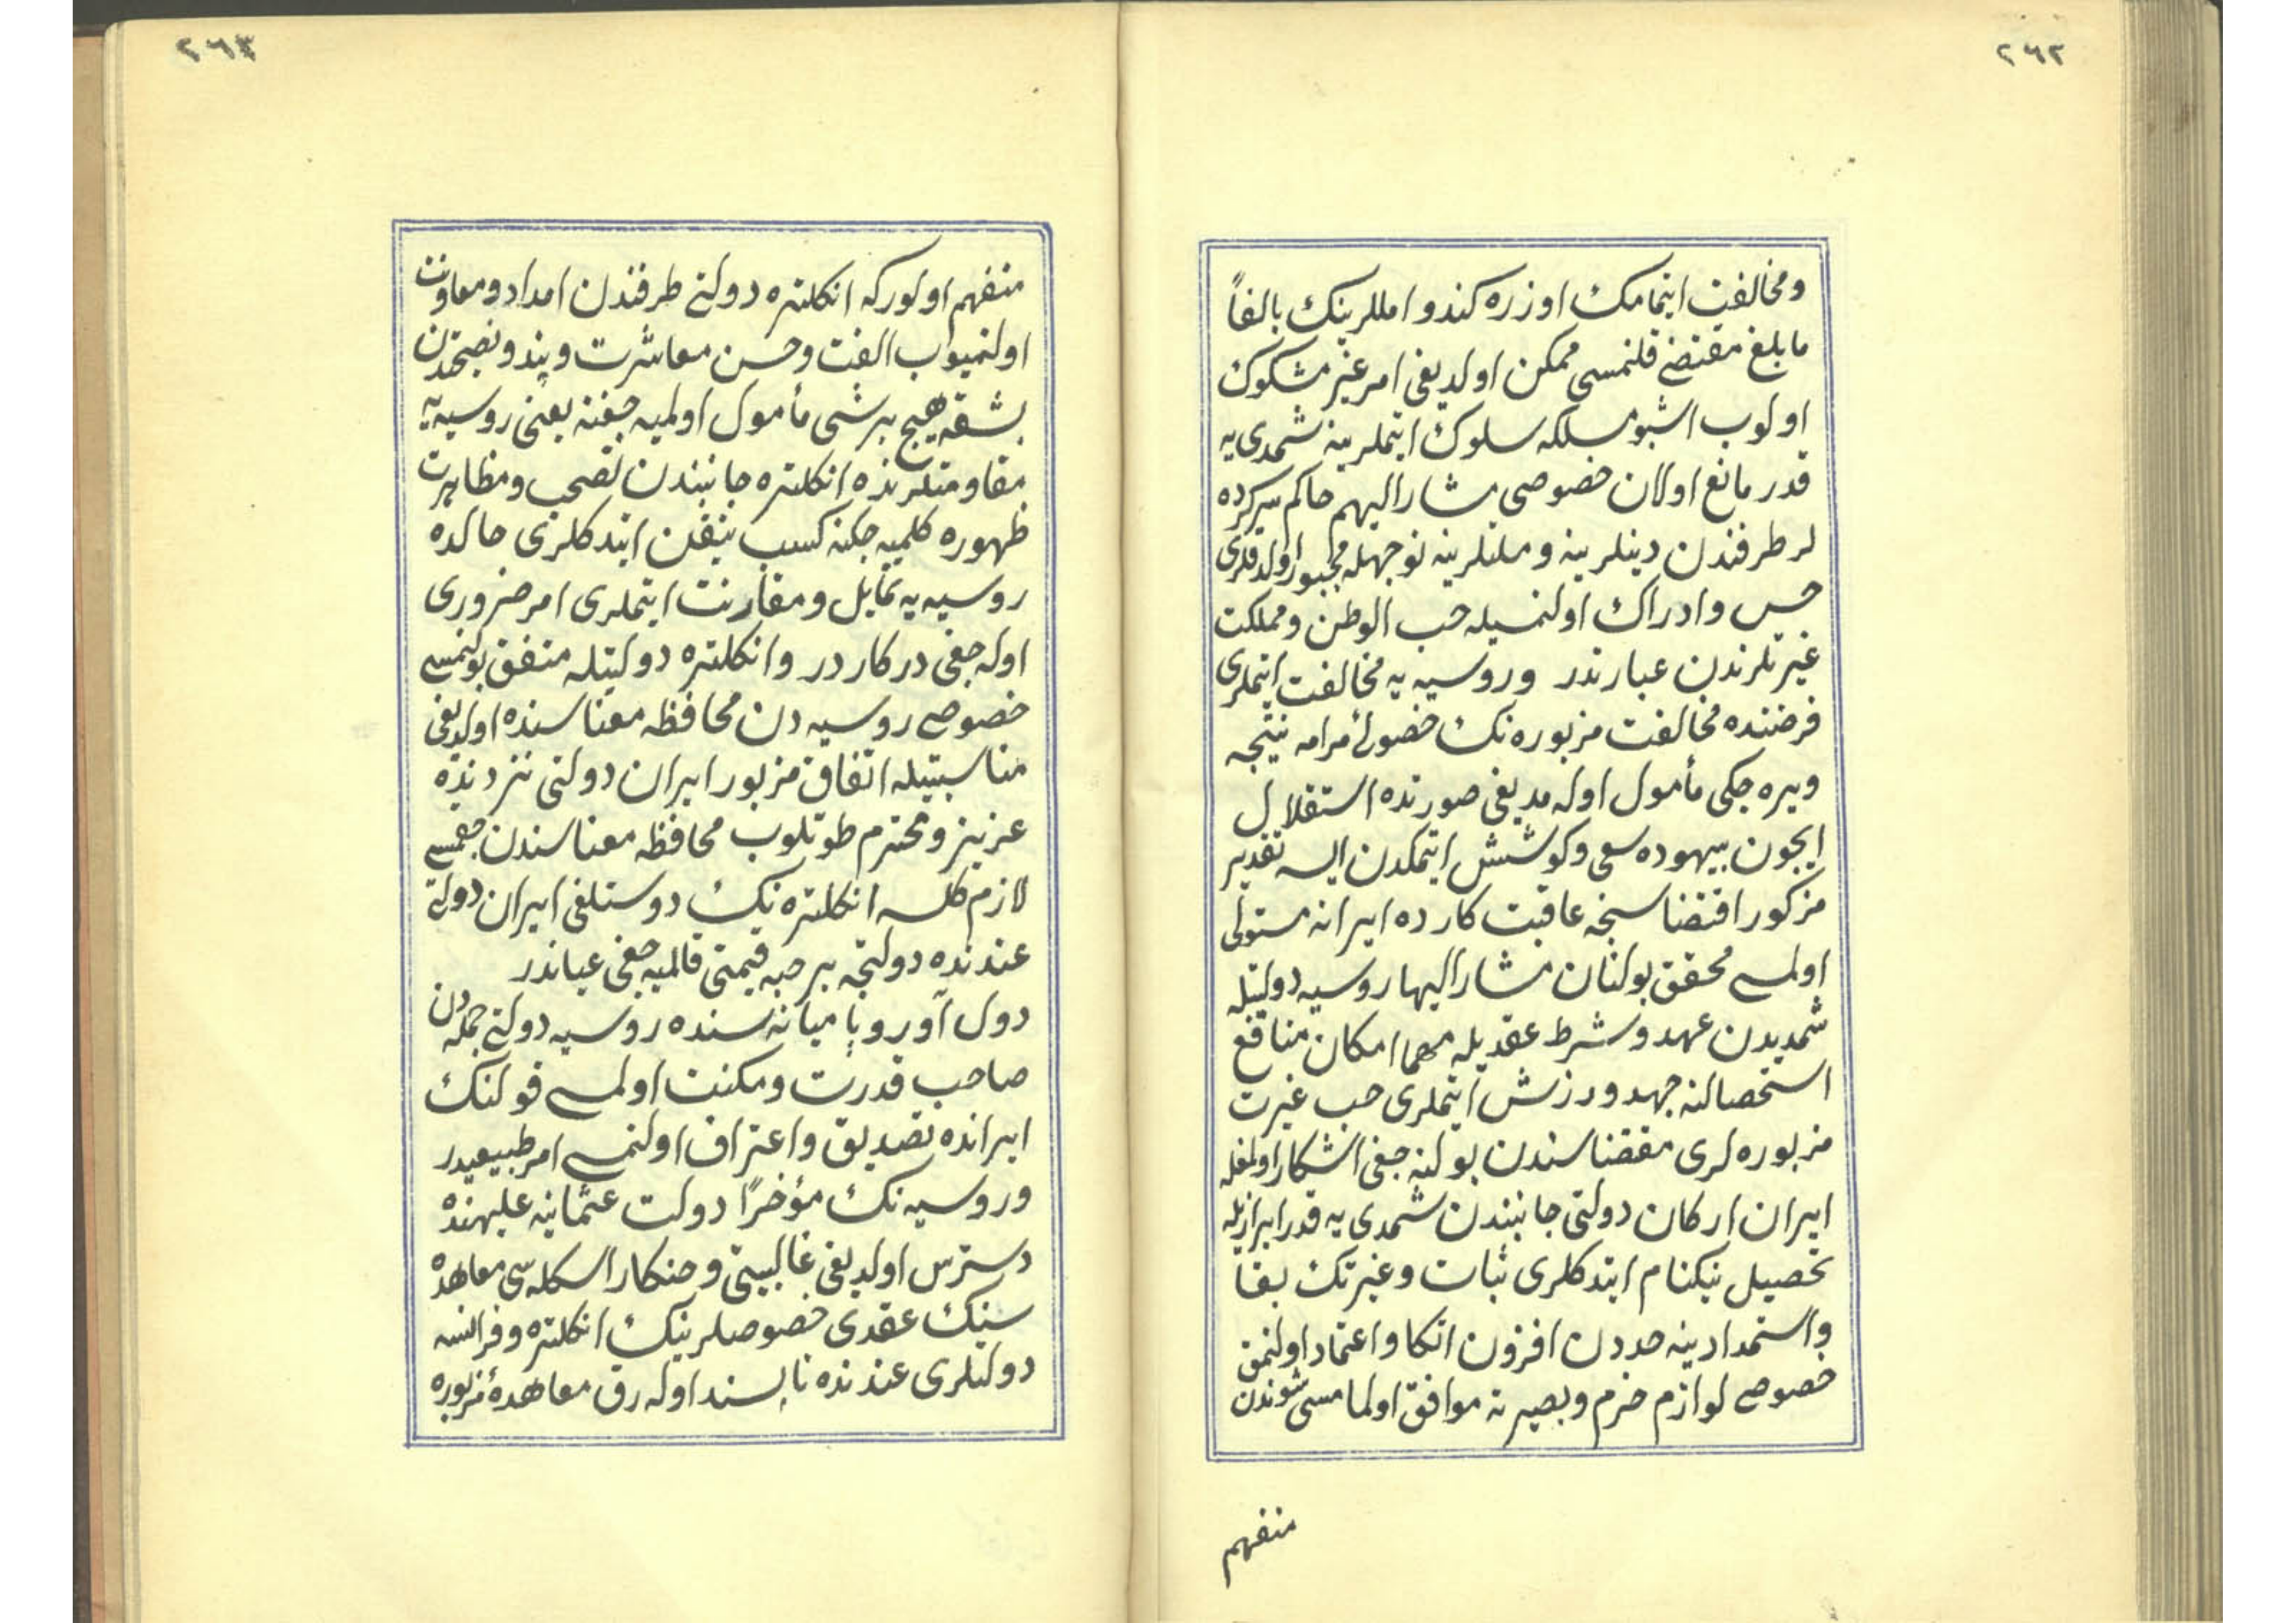 ٢٦٢
ومخالفت ايتمامك اوزره كندو امللرينك بالغاً
مابلغ مقتضى قلنمسى ممكن اولديغى امر غير مشكوك
اولوب اشبو مسلكه سلوك ايتملرينه شمدى يه
قدر مانع اولان خصوصى مشار اليهم حاكم سركرده
لر طرفندن دينلرينه وملتلرينه نوجهله مجبور اولدقلرى
حس وادراك اولنمسيله حب الوطن ومملكت
غيرتلرندن عبارتدر وروسيه يه مخالفت ايتملرى
فرضنده مخالفت مزبوره نك حضول مرامه نتيجه
ويره جكى مأمول اوله مديغى صورتده استقلال
ايچون بيهوده سعى وكوشش ايتمكدن ايسه تقدير
مزكور اقتضاسنجه عاقبت كارده ايرانه مستولى
اولمسى محقق بولنان مشار اليها روسيه دولتيله
شمديدن عهد وشرط عقديله مهما امكان منافع
استحصالنه جهد وورزش ايتملرى حب غيرت
مزبوره لرى مقتضاسندن بولنه جغى اشكار اولمغله
ايران اركان دولتى جانبندن شمدى يه قدر ابرازيله
تحصيل نيكنام ايتدكلرى ثبات وغيرتك بقا
واستمدادينه حددن افزون اتكا واعتماد اولنمق
خصوصى لوازم حزم وبصيرته موافق اولمامسى شوندن
منفهم
٢٦٣
منفهم اولوركه انكلتره دولتى طرفندن امداد ومعاونت
اولنميوب الفت وحسن معاشرت وپند ونصيحتدن
بشقه هيچ برشى مأمول اولميه جغنه يعنى روسيه يه
مقاومتلرنده انكلتره جانبندن تصحب ومظاهرت
ظهوره كلميه جكنه كسب تيقن ايتدكلرى حالده
روسيه يه تمايل ومقارنت ايتملرى امر ضرورى
اوله جغى دركاردر وانكلتره دولتيله متفق بولنمسى
خصوصى روسيه دن محافظه معناسنده اولديغى
مناسبتيله اتفاق مزبور ايران دولتى نزدنده
عزيز ومحترم طوتلوب محافظه معناسندن چقمسى
لازم كلسه انكلتره نيك دوستلغى ايران دولتى
عندنده دولتجه بر حبه قيمتى قالميه جغى عياندر
دول آوروپا ميانه سنده روسيه دولتى جمله دن
صاحب قدرت ومكنت اولمسى قولنك
ايرانده تصديق واعتراف اولنمسى امر طبيعيدر
وروسيه نك مؤخراً دولت عثمانيه عليهنده
دسترس اولديغى غالبيتى وحنكار اسكله سى معاهده
سنيك عقدى خصوصلرينك انكلتره وفرانسه
دولتلرى عندنده ناپسند اوله رق معاهدهٔ مزبوره